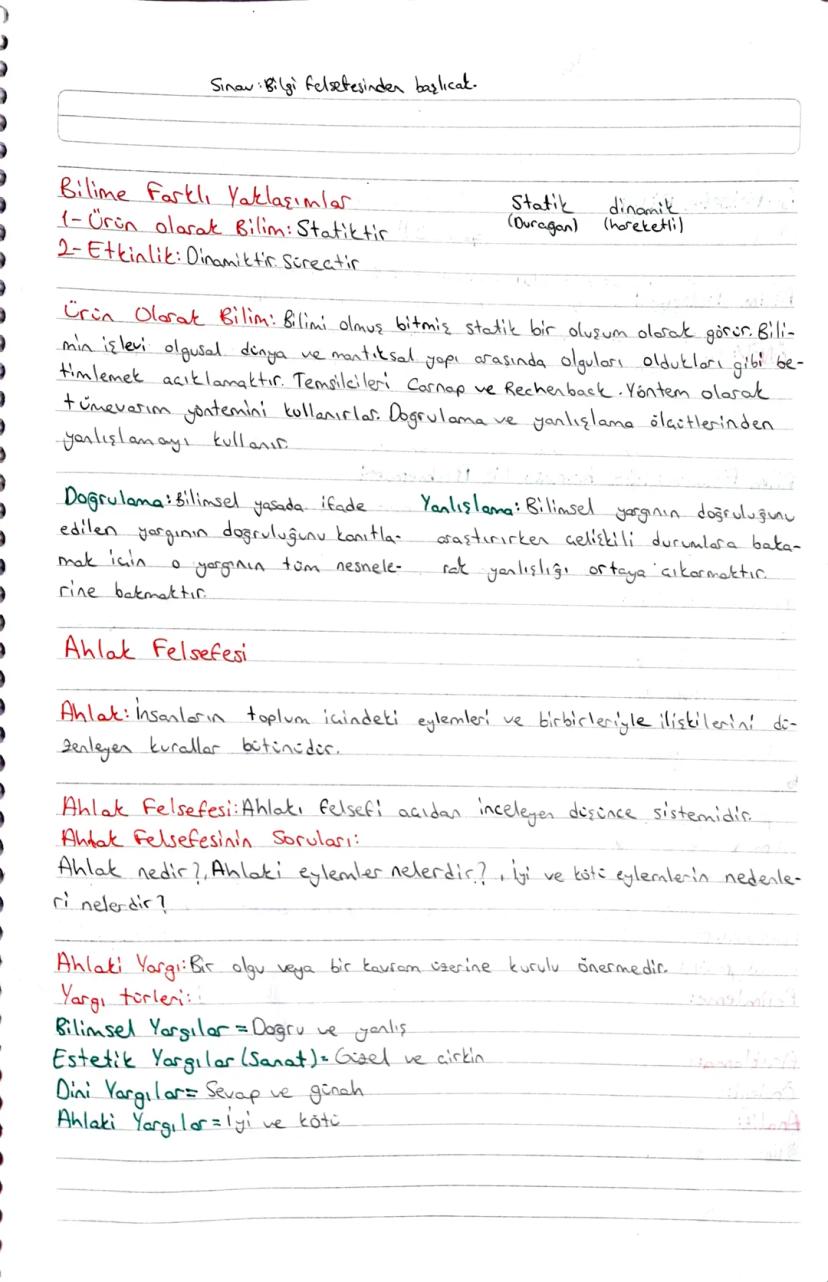 Sınav: Bilgi felsefesinden başlıcak.
Bilime Farklı Yaklaşımlar
Statik dinamik
1- Ürün olarak Bilim: Statiktir
(Duragan) (hareketli)
2- Etkinlik: Dinamiktir. Süreçtir
Ürün Olarak Bilim: Bilimi olmuş bitmiş statik bir oluşum olarak görür. Bili-
min işlevi olgusal dünya ve mantıksal yapı arasında olguları oldukları gibi be-
timlemek açıklamaktır. Temsilcileri Carnap ve Rechenback. Yöntem olarak
tümevarım yöntemini kullanırlar. Doğrulama ve yanlışlama ölçütlerinden
yanlışlamayı kullanır.
Doğrulama: Bilimsel yasada ifade
edilen yargının doğruluğunu kanıtla-
mak için o yargının tüm nesnele-
rine bakmaktır.
Yanlışlama: Bilimsel yargının doğruluğunu
araştırırken çelişkili durumlara baka-
rak yanlışlığı ortaya çıkarmaktır.
Ahlak Felsefesi
Ahlak: İnsanların toplum içindeki eylemleri ve birbirleriyle ilişkilerini dü-
zenleyen kurallar bütünüdür.
Ahlak Felsefesi: Ahlakı felsefi açıdan inceleyen düşünce sistemidir.
Ahlak Felsefesinin Soruları:
Ahlak nedir?, Ahlaki eylemler nelerdir?, İyi ve kötü eylemlerin nedenle-
ri nelerdir?
Ahlaki Yargı: Bir olgu veya bir kavram üzerine kurulu önermedir.
Yargı türleri:
Bilimsel Yargılar = Doğru ve yanlış
Estetik Yargılar (Sanat) = Güzel ve çirkin
Dini Yargılar = Sevap ve günah
Ahlaki Yargılar = İyi ve kötü